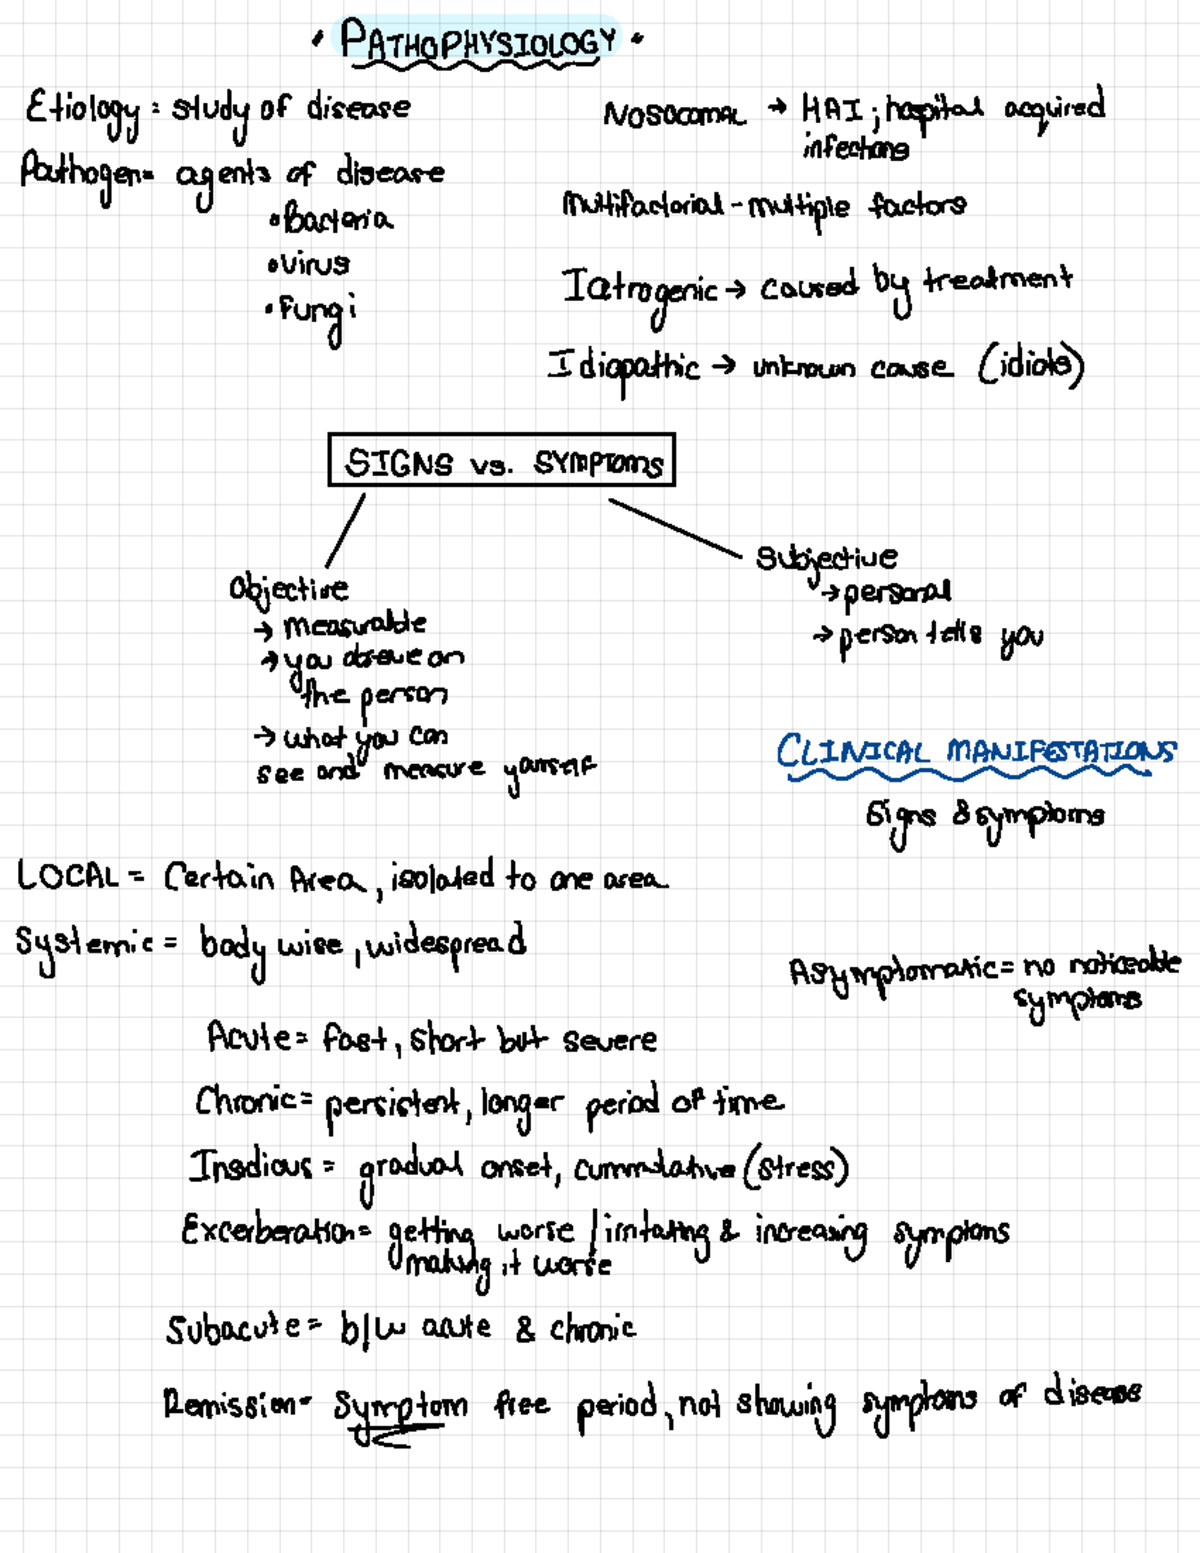 • PATHOPHYSIOLOGY •
Etiology = study of disease
Pathogen= agents of disease
• Bacteria
• Virus
• Fungi
NOSOCOMAL → HAI; hospital acquired
infections
Multifactorial - multiple factors
Iatrogenic → caused by treatment
Idiopathic → unknown cause (idiots)
SIGNS vs. SYMPTOMS
Objective
→ measurable
→ you observe on
the person
→ what you can
see and measure yourself
Subjective
→ personal
→ person tells you
CLINICAL MANIFESTATIONS
Signs & symptoms
LOCAL = Certain Area, isolated to one area
Systemic = body wise, widespread
Asymptomatic = no noticeable
symptoms
Acute = fast, short but severe
Chronic = persistent, longer period of time
Insdious = gradual onset, cummulative (stress)
Excerberation= getting worse / irritating & increasing symptoms
making it worse
Subacute = b/w acute & chronic
Remission= Symptom free period, not showing symptoms of disease